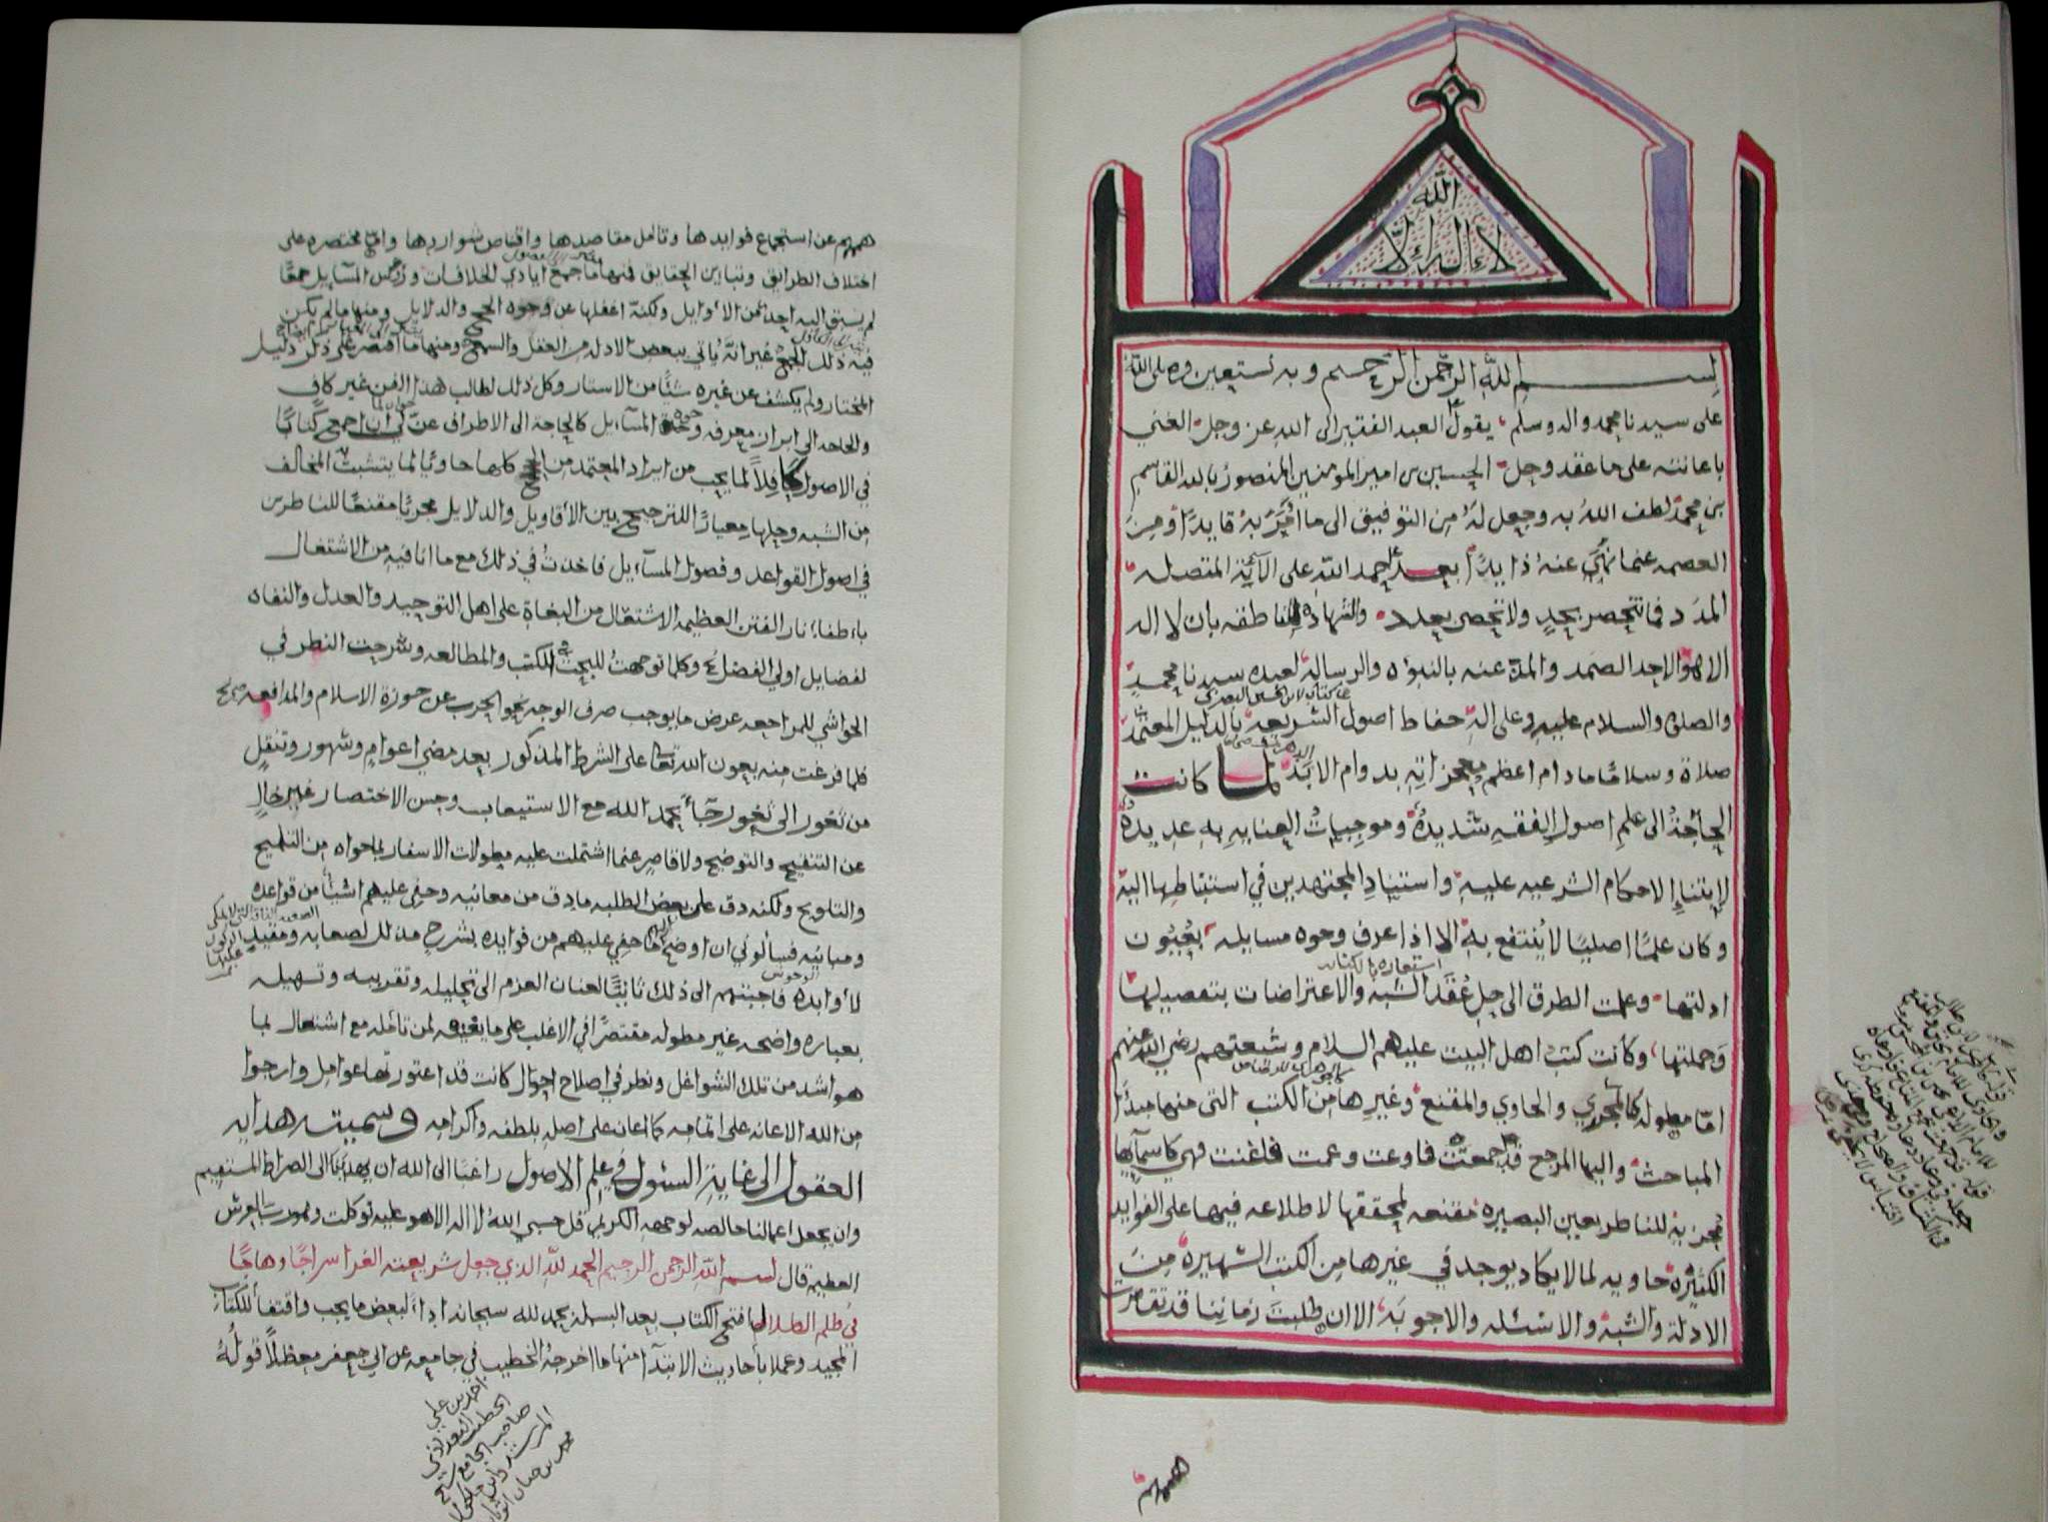 لا إله إلا الله
بسم الله الرحمن الرحيم وبه نستعين وصلى الله
على سيدنا محمد واله وسلم يقول العبد الفقير الى الله عز وجل الغني
باعانته على ما عقد وحل الحسين بن امير المومنين المنصور بالله القاسم
بن محمد لطف الله به وجعل له من التوفيق الى ما امر به قايدا ومن
العصمه عنما نهي عنه ذايدا بعد حمد الله على الآئه المتصله
المدد فما تنحصر بحد ولا تحصى بعدد والشهاده الناطقه بان لا اله
الا هو الاحد الصمد والمده عنه بالنبوه والرساله لعبده سيدنا محمد
والصلوة والسلام عليه وعلى اله حفاظ اصول الشريعه بالدليل المعتمد
صلاة وسلاما ما دام اعظم معجزاته بدوام الابد لما كانت
الحاجة الى علم اصول الفقه شديدة وموجبات العنايه به عديدة
لابتناء الاحكام الشرعيه عليه واستناد المجتهدين في استنباطها اليه
وكان علما اصليا لا ينتفع به الا اذا عرف وجوه مسايله بعيون
ادلتها وعلمت الطرق الى حل عقد الشبه والاعتراضات بتفصيلها
وجملتها وكانت كتب اهل البيت عليهم السلام وشيعتهم رضي الله عنهم
اما مطوله كالمجزي والحاوي والمقنع وغيرها من الكتب التي منها مبدأ
المباحث واليها المرجع قد جمعت فاوعت وعمت فاغنت فهي كاسمآيها
مجزية للناظر بعين البصيره مقنعه لمحققها لاطلاعه فيها على الفوايد
الكثيره حاويه لما لا يكاد يوجد في غيرها من الكتب الشهيره من
الادلة والشبه والاسئله والاجوبه الا ان طلبة زماننا قد تقاصرت
هممهم
هممهم عن استجماع فوايدها وتامل مقاصدها واقتناص شواردها واما مختصره على
اختلاف الطرائق وتباين الحقايق فمنها ما جمع ايادي الخلافات و المسآيل جمعا
لم يسبق اليه احد من الاوايل ولكنه اغفلها عن وجوه الحجج والدلايل ومنها ما لم يكن
فيه ذلك الجمع غير انه ياتي ببعض الادله من العقل والسمع ومنها ما اقتصر على ذكر دليل
المختار ولم يكشف عن غيره شيئا من الاستار وكل ذلك لطالب هذا الفن غير كاف
والحاجه الى ابراز معرفه وجوه المسآيل كالحاجة الى الاطراف عن لي ان اجمع كتابا
في الاصول كافلا لما يجب من ايراد المعتمد من الحجج كلها حاويا لما يتشبث المخالف
من الشبه وحلها معيارا للترجيح بين الأقاويل والدلايل مجزيا مقنعا للناظرين
في اصول القواعد وفصول المسآيل فاخذت في ذلك مع ما انا فيه من الاشتغال
باطفاء نار الفتن العظيمه الاشتعال من البغاة على اهل التوحيد والعدل والنفاه
لفضايل اولي الفضل وكلما توجهت للبحث في الكتب والمطالعه وسرحت النظر في
الحواشي للمراجعه عرض ما يوجب صرف الوجه نحو الحرب عن حوزة الاسلام والمدافعه
فلما فرغت منه بعون الله تعالى على الشرط المذكور بعد مضي اعوام وشهور وتنقل
من ثغور الى ثغور جآء بحمد الله مع الاستيعاب وحسن الاختصار غير خال
عن التنقيح والتوضيح ولا قاصر عنما اشتملت عليه مطولات الاسفار بما حواه من التلميح
والتلويح ولكنه دق على بعض الطلبه ما دق من معانيه وخفي عليهم اشيآ من قواعده
ومبانيه فسألوني ان اوضح لهم ما خفي عليهم من فوايده بشرح مذلل لصعابه ومقيد
لأوابده فاجبتهم الى ذلك ثانيا لعنان العزم الى تحليله وتقريبه وتسهيله
بعباره واضحه غير مطوله مقتصرا في الاغلب على ما يعنيه لمن تامله مع اشتغال بما
هو اشد من تلك الشواغل ونظر في اصلاح احوال كانت قد اعتورتها عوامل وارجوا
من الله الاعانه على اتمامه كما اعان على اصله بلطفه واكرامه وسميته هداية
العقول الى غاية السئول في علم الاصول راغبا الى الله ان يهدينا الى الصراط المستقيم
وان يجعل اعمالنا خالصه لوجهه الكريم قل حسبي الله لا اله الا هو عليه توكلت وهو رب العرش
العظيم قال بسم الله الرحمن الرحيم الحمد لله الذي جعل شريعته الغرا سراجا وهاجا
في ظلم الضلال افتتح الكتاب بعد البسمله بحمد لله سبحانه ادآء لبعض ما يجب واقتفآ للكتاب
المجيد وعملا باحاديث الابتدآ منها ما اخرجه الخطيب في جامعه عن ابي جعفر معضلا قوله
احمد بن علي
الخطيب البغدادي
صاحب الجامع